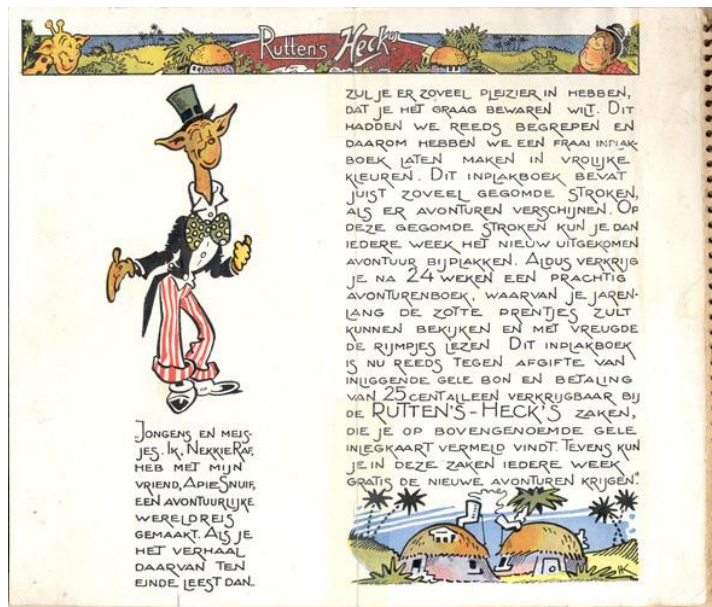 Rutten's Heck's
„JONGENS EN MEIS-
JES. IK, NEKKIE RAF.
HEB MET MIJN
VRIEND, APIE SNUIF,
EEN AVONTUURLIJKE
WERELDREIS
GEMAAKT. ALS JE
HET VERHAAL
DAARVAN TEN
EINDE LEEST DAN..
ZUL JE ER ZOVEEL PLEIZIER IN HEBBEN,
DAT JE HET GRAAG BEWAREN WILT. DIT
HADDEN WE REEDS BEGREPEN EN
DAAROM HEBBEN WE EEN FRAAI INPLAK-
BOEK LATEN MAKEN IN VROLIJKE
KLEUREN. DIT INPLAKBOEK BEVAT
JUIST ZOVEEL GEGOMDE STROKEN,
ALS ER AVONTUREN VERSCHIJNEN. OP
DEZE GEGOMDE STROKEN KUN JE DAN
IEDERE WEEK HET NIEUW UITGEKOMEN
AVONTUUR BIJPLAKKEN. ALDUS VERKRIJG
JE NA 24 WEKEN EEN PRACHTIG
AVONTURENBOEK, WAARVAN JE JAREN-
LANG DE ZOTTE PRENTJES ZULT
KUNNEN BEKIJKEN EN MET VREUGDE
DE RIJMPJES LEZEN DIT INPLAKBOEK
IS NU REEDS TEGEN AFGIFTE VAN
INLIGGENDE GELE BON EN BETALING
VAN 25 CENT ALLEEN VERKRIJGBAAR BIJ
DE RUTTEN'S-HECK'S ZAKEN,
DIE JE OP BOVENGENOEMDE GELE
INLEGKAART VERMELD VINDT. TEVENS KUN
JE IN DEZE ZAKEN IEDERE WEEK
GRATIS DE NIEUWE AVONTUREN KRIJGEN."
HK